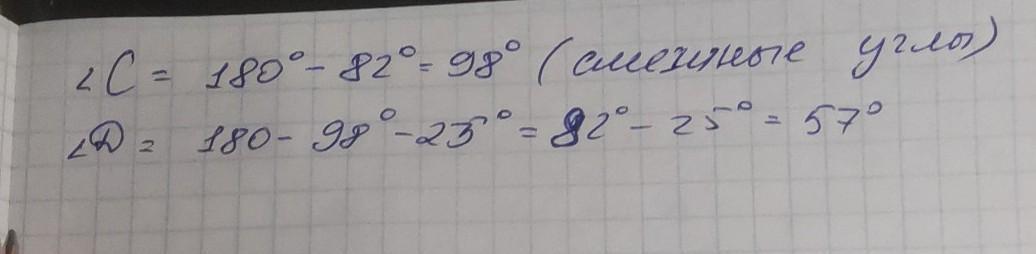 ∠C = 180° - 82° = 98° (смежные углы)
∠D = 180 - 98° - 25° = 82° - 25° = 57°